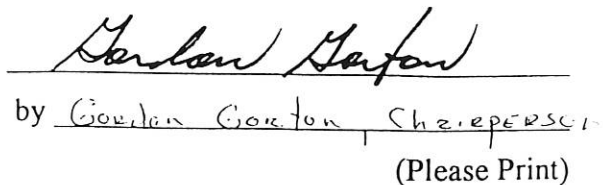 Gordon Gorton
by Gordon Gorton, Chairperson
(Please Print)